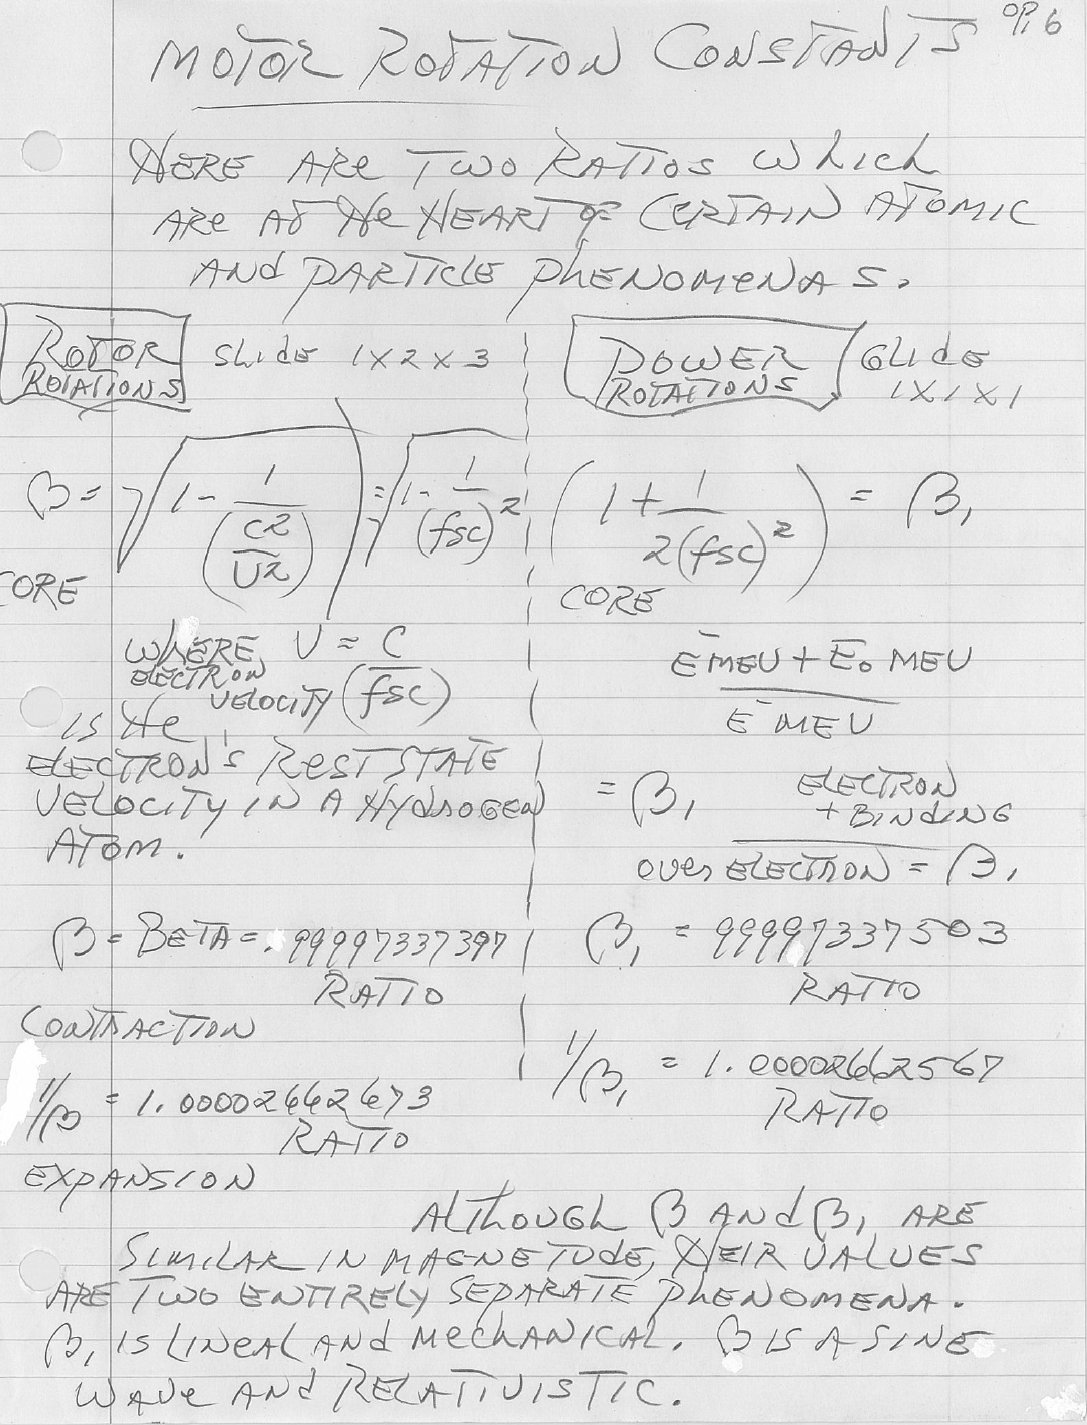 OP. 6
MOTOR ROTATION CONSTANTS
HERE ARE TWO RATIOS WHICH
ARE AT THE HEART OF CERTAIN ATOMIC
AND PARTICLE PHENOMENAS.
ROTOR ROTATIONS SLIDE 1X2X3
β = √(1 - 1/(C2/V2)) = √(1 - 1/(fsc)2)
CORE
WHERE V = C/(fsc)
ELECTRON
VELOCITY
IS THE
ELECTRON'S REST STATE
VELOCITY IN A HYDROGEN
ATOM.
β = BETA = .99997337397
RATIO
CONTRACTION
1/β = 1.00002662673
RATIO
EXPANSION
POWER ROTATIONS GLIDE
1X1X1
(1 + 1/2(fsc)2) = β1
CORE
E- MEV + E0 MEV
E- MEV
= β1 ELECTRON
+ BINDING
OVER ELECTRON = β1
β1 = 99997337503
RATIO
1/β1 = 1.00002662567
RATIO
ALTHOUGH β AND β1 ARE
SIMILAR IN MAGNETUDE, THEIR VALUES
ARE TWO ENTIRELY SEPARATE PHENOMENA.
β1 IS LINEAL AND MECHANICAL. β IS A SINE
WAVE AND RELATIVISTIC.